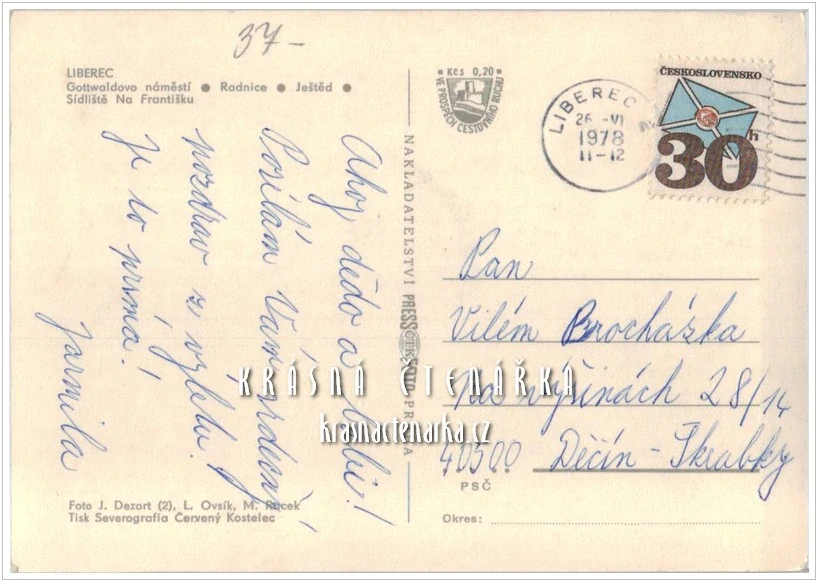 37-
LIBEREC
Gottwaldovo náměstí ● Radnice ● Ještěd ●
Sídliště Na Františku
Kčs 0,20
VE PROSPĚCH CESTOVNÍHO RUCHU
LIBEREC
26.-VI
1978
11-12
ČESKOSLOVENSKO
30h
Ahoj dědo a babi!
Posílám Vám srdečný
pozdrav z výletu.
Je to príma!
Jarmila
NAKLADATELSTVÍ PRESSFOTO PRAHA
Pan
Vilém Brocházka
Na výšinách 28/14
40500 Děčín-Škrabky
PSČ
Okres:
KRÁSNÁ ČTENÁŘKA
krasnactenarka.cz
Foto J. Dezort (2), L. Ovsík, M. Rucek
Tisk Severografia Červený Kostelec